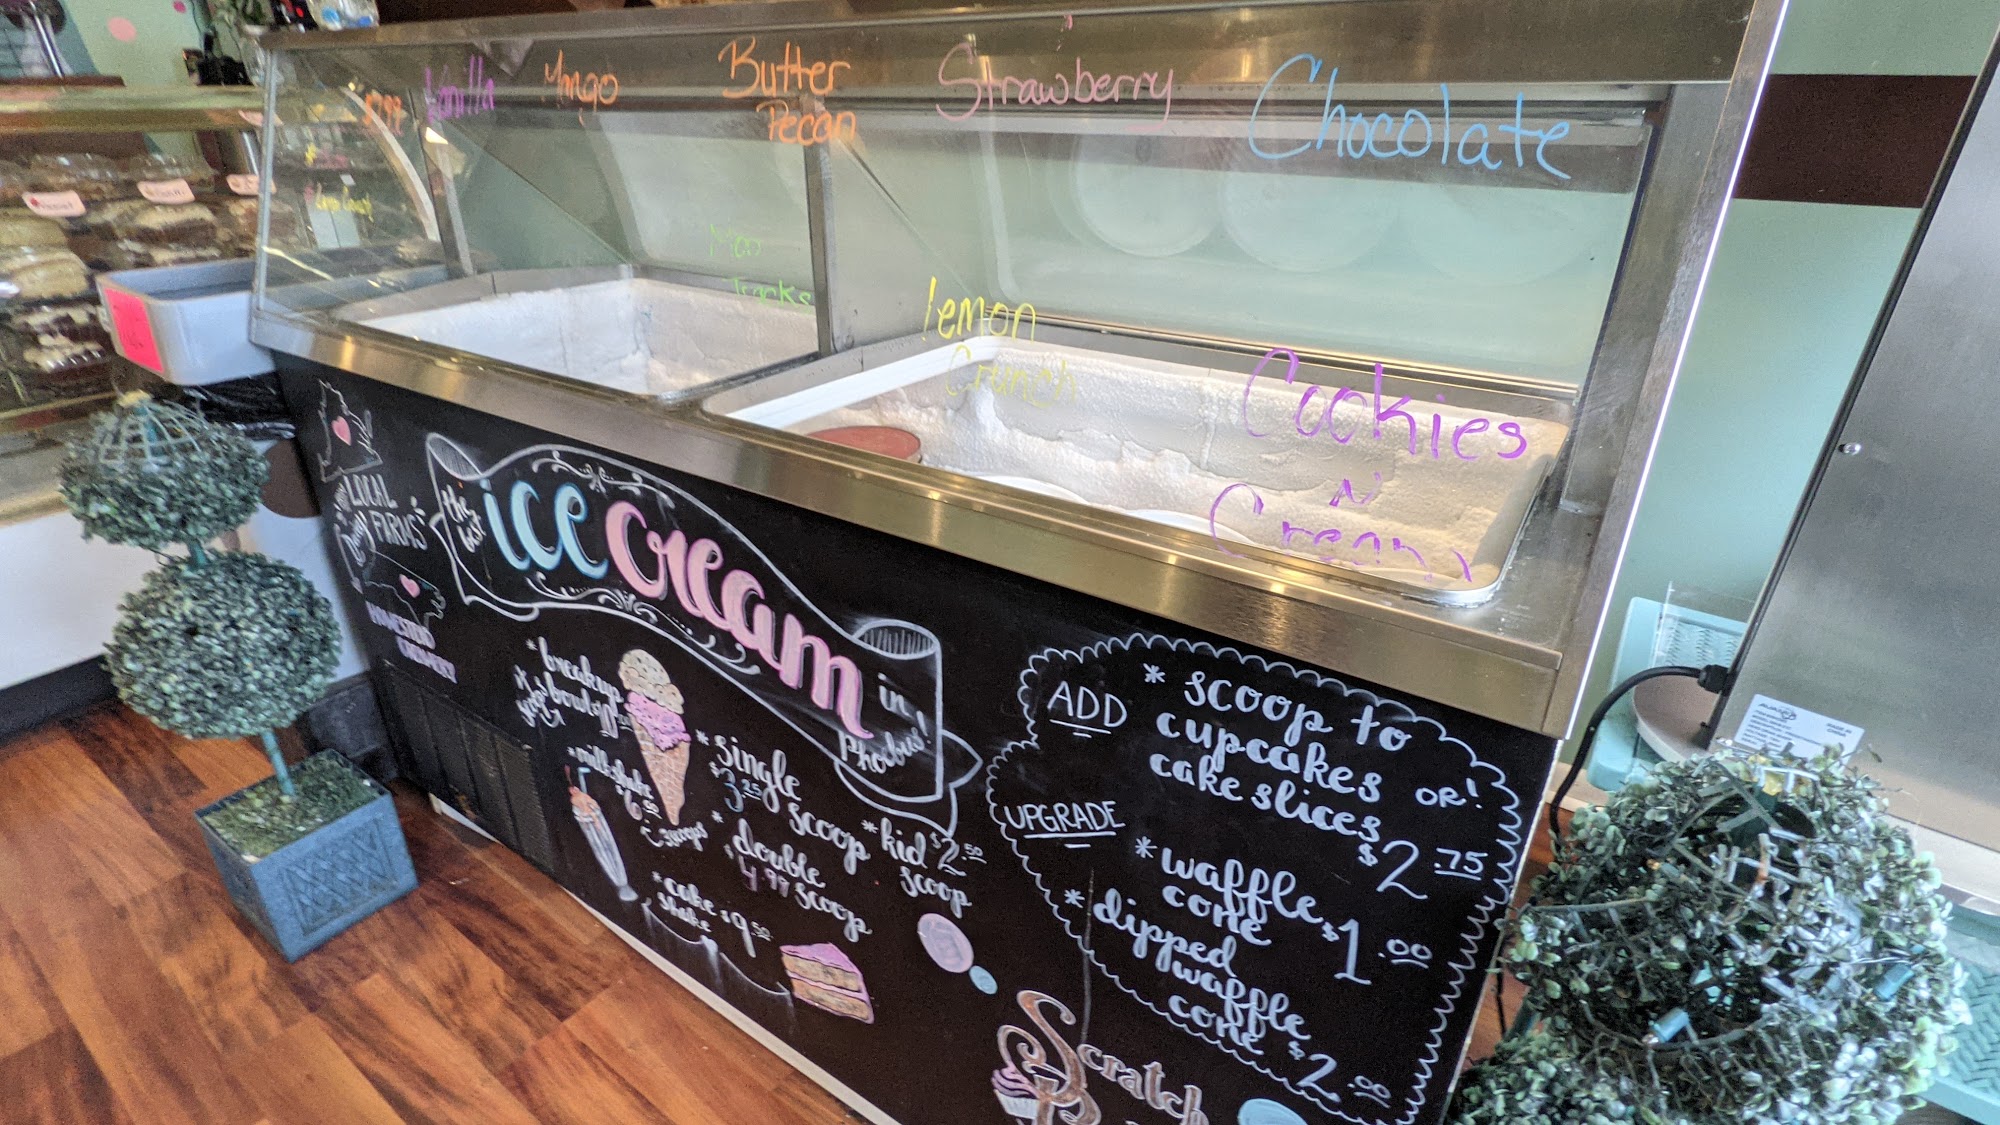 Vanilla
Mango
Butter
Pecan
Strawberry
Chocolate
Moo
Tracks
lemon
Crunch
Cookies
N'
Cream
LOCAL
FARMS
HOMESTEAD
CREAMERY
the
best
ice cream
in
phoebus!
* breakup
bowl
* milkshake
$6.50
3 scoops
* cake $9.50
shake
* single
$3.25 scoop
* double
$4.99 scoop
* kid $2.50
scoop
ADD
* scoop to
cupcakes OR!
cake slices
$2.75
UPGRADE
* waffle
cone $1.00
* dipped
waffle
cone $2.00
Scratch